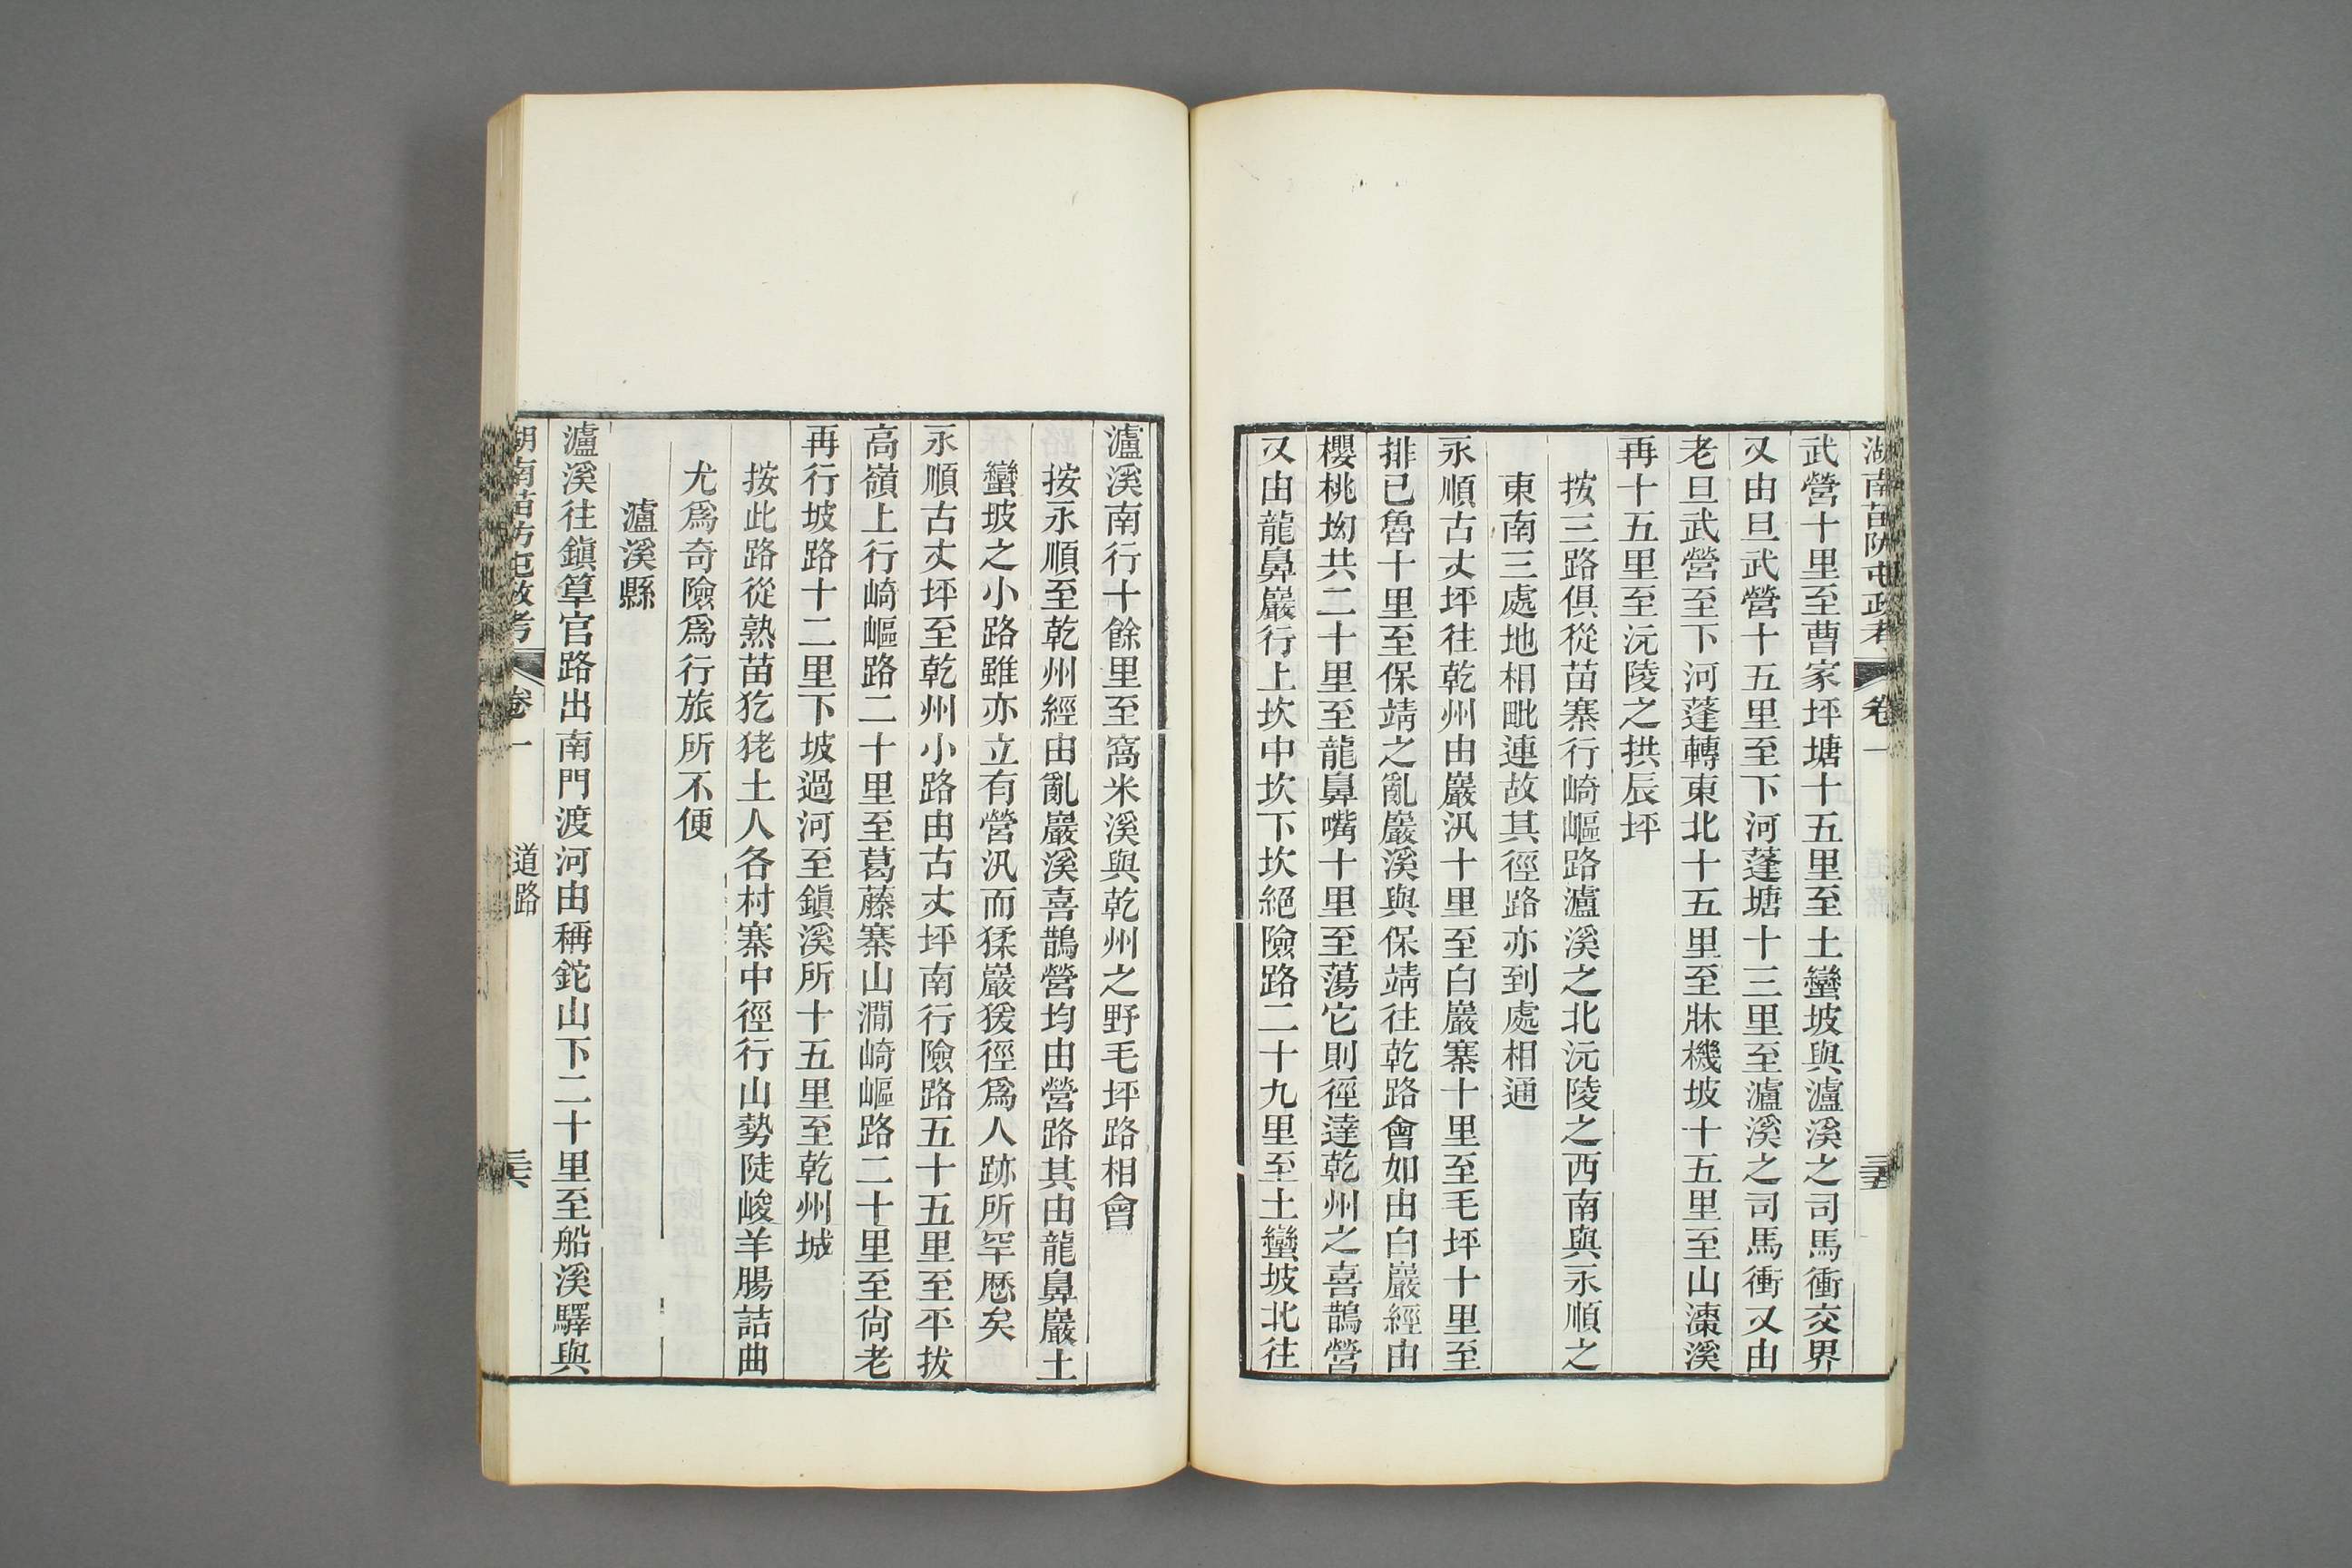 湖南苗防屯政考 卷一 三五
武營十里至曹家坪塘十五里至土蠻坡與瀘溪之司馬衝交界
又由旦武營十五里至下河蓬塘十三里至瀘溪之司馬衝又由
老旦武營至下河蓬轉東北十五里至牀機坡十五里至山溱溪
再十五里至沅陵之拱辰坪
按三路俱從苗寨行崎嶇路瀘溪之北沅陵之西南與永順之
東南三處地相毗連故其徑路亦到處相通
永順古丈坪往乾州由巖汛十里至白巖寨十里至毛坪十里至
排已魯十里至保靖之亂巖溪與保靖往乾路會如由白巖經由
櫻桃坳共二十里至龍鼻嘴十里至蕩它則徑達乾州之喜鵲營
又由龍鼻巖行上坎中坎下坎絕險路二十九里至土蠻坡北往
瀘溪南行十餘里至窩米溪與乾州之野毛坪路相會
按永順至乾州經由亂巖溪喜鵲營均由營路其由龍鼻巖土
蠻坡之小路雖亦立有營汛而猱巖猨徑爲人跡所罕歷矣
永順古丈坪至乾州小路由古丈坪南行險路五十五里至平拔
高嶺上行崎嶇路二十里至葛藤寨山澗崎嶇路二十里至尙老
再行坡路十二里下坡過河至鎭溪所十五里至乾州城
按此路從熟苗犵狫土人各村寨中徑行山勢陡峻羊腸詰曲
尤爲奇險爲行旅所不便
瀘溪縣
瀘溪往鎭筸官路出南門渡河由稱鉈山下二十里至船溪驛與
湖南苗防屯政考 卷一 道路 三六